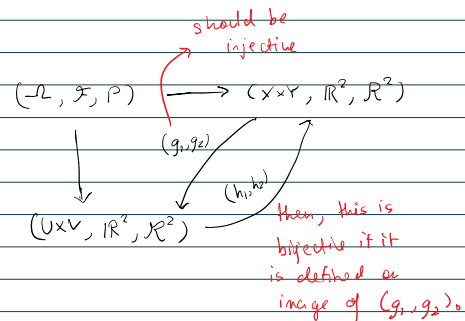 should be
injective
(Ω, F, P) → (X×Y, ℝ², R²)
(g₁,g₂)
(h₁,h₂)
(U×V, ℝ², R²)
then, this is
bijective if it
is defined on
image of (g₁,g₂).